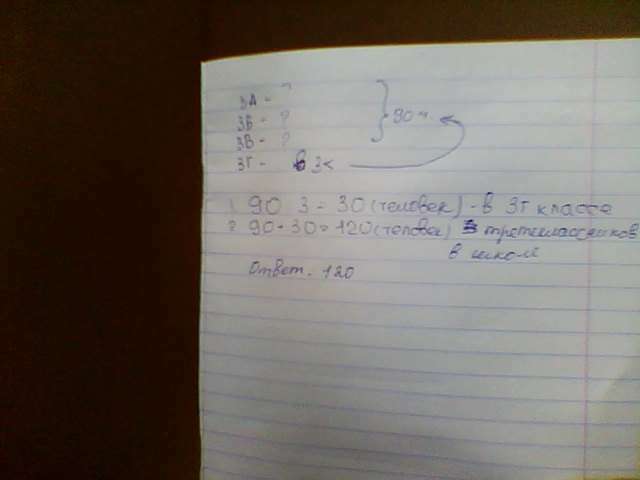 3А - ?
3Б - ?
3В - ?
90 ч
3Г - в 3 <
1 90 3 = 30 (человек) - в 3г классе
2 90 + 30 = 120 (человек) третьеклассников
в школе
Ответ. 120